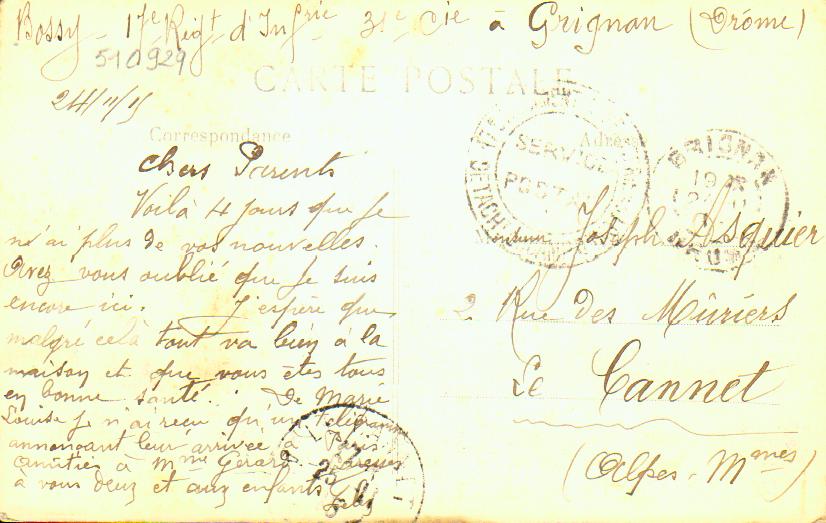 Bossy 17e Regt d'Infrie 31e Cie à Grignan (Drôme)
510929
CARTE POSTALE
24/11/15
Correspondance
Adresse
chers Parents
Voilà 4 jours que je
n'ai plus de vos nouvelles.
Avez vous oublié que je suis
encore ici. J'espère que
malgré celà tout va bien à la
maison et que vous êtes tous
en bonne santé. De Marie
Louise je n'ai reçu qu'un télégramme
annonçant leur arrivée à Paris
Amitiés à Mme Gérard. Caresses
à vous deux et aux enfants
SERVICE
POSTAL
GRIGNAN
Monsieur Joseph Asquier
2 Rue des Mûriers
Le Cannet
(Alpes-Mmes)